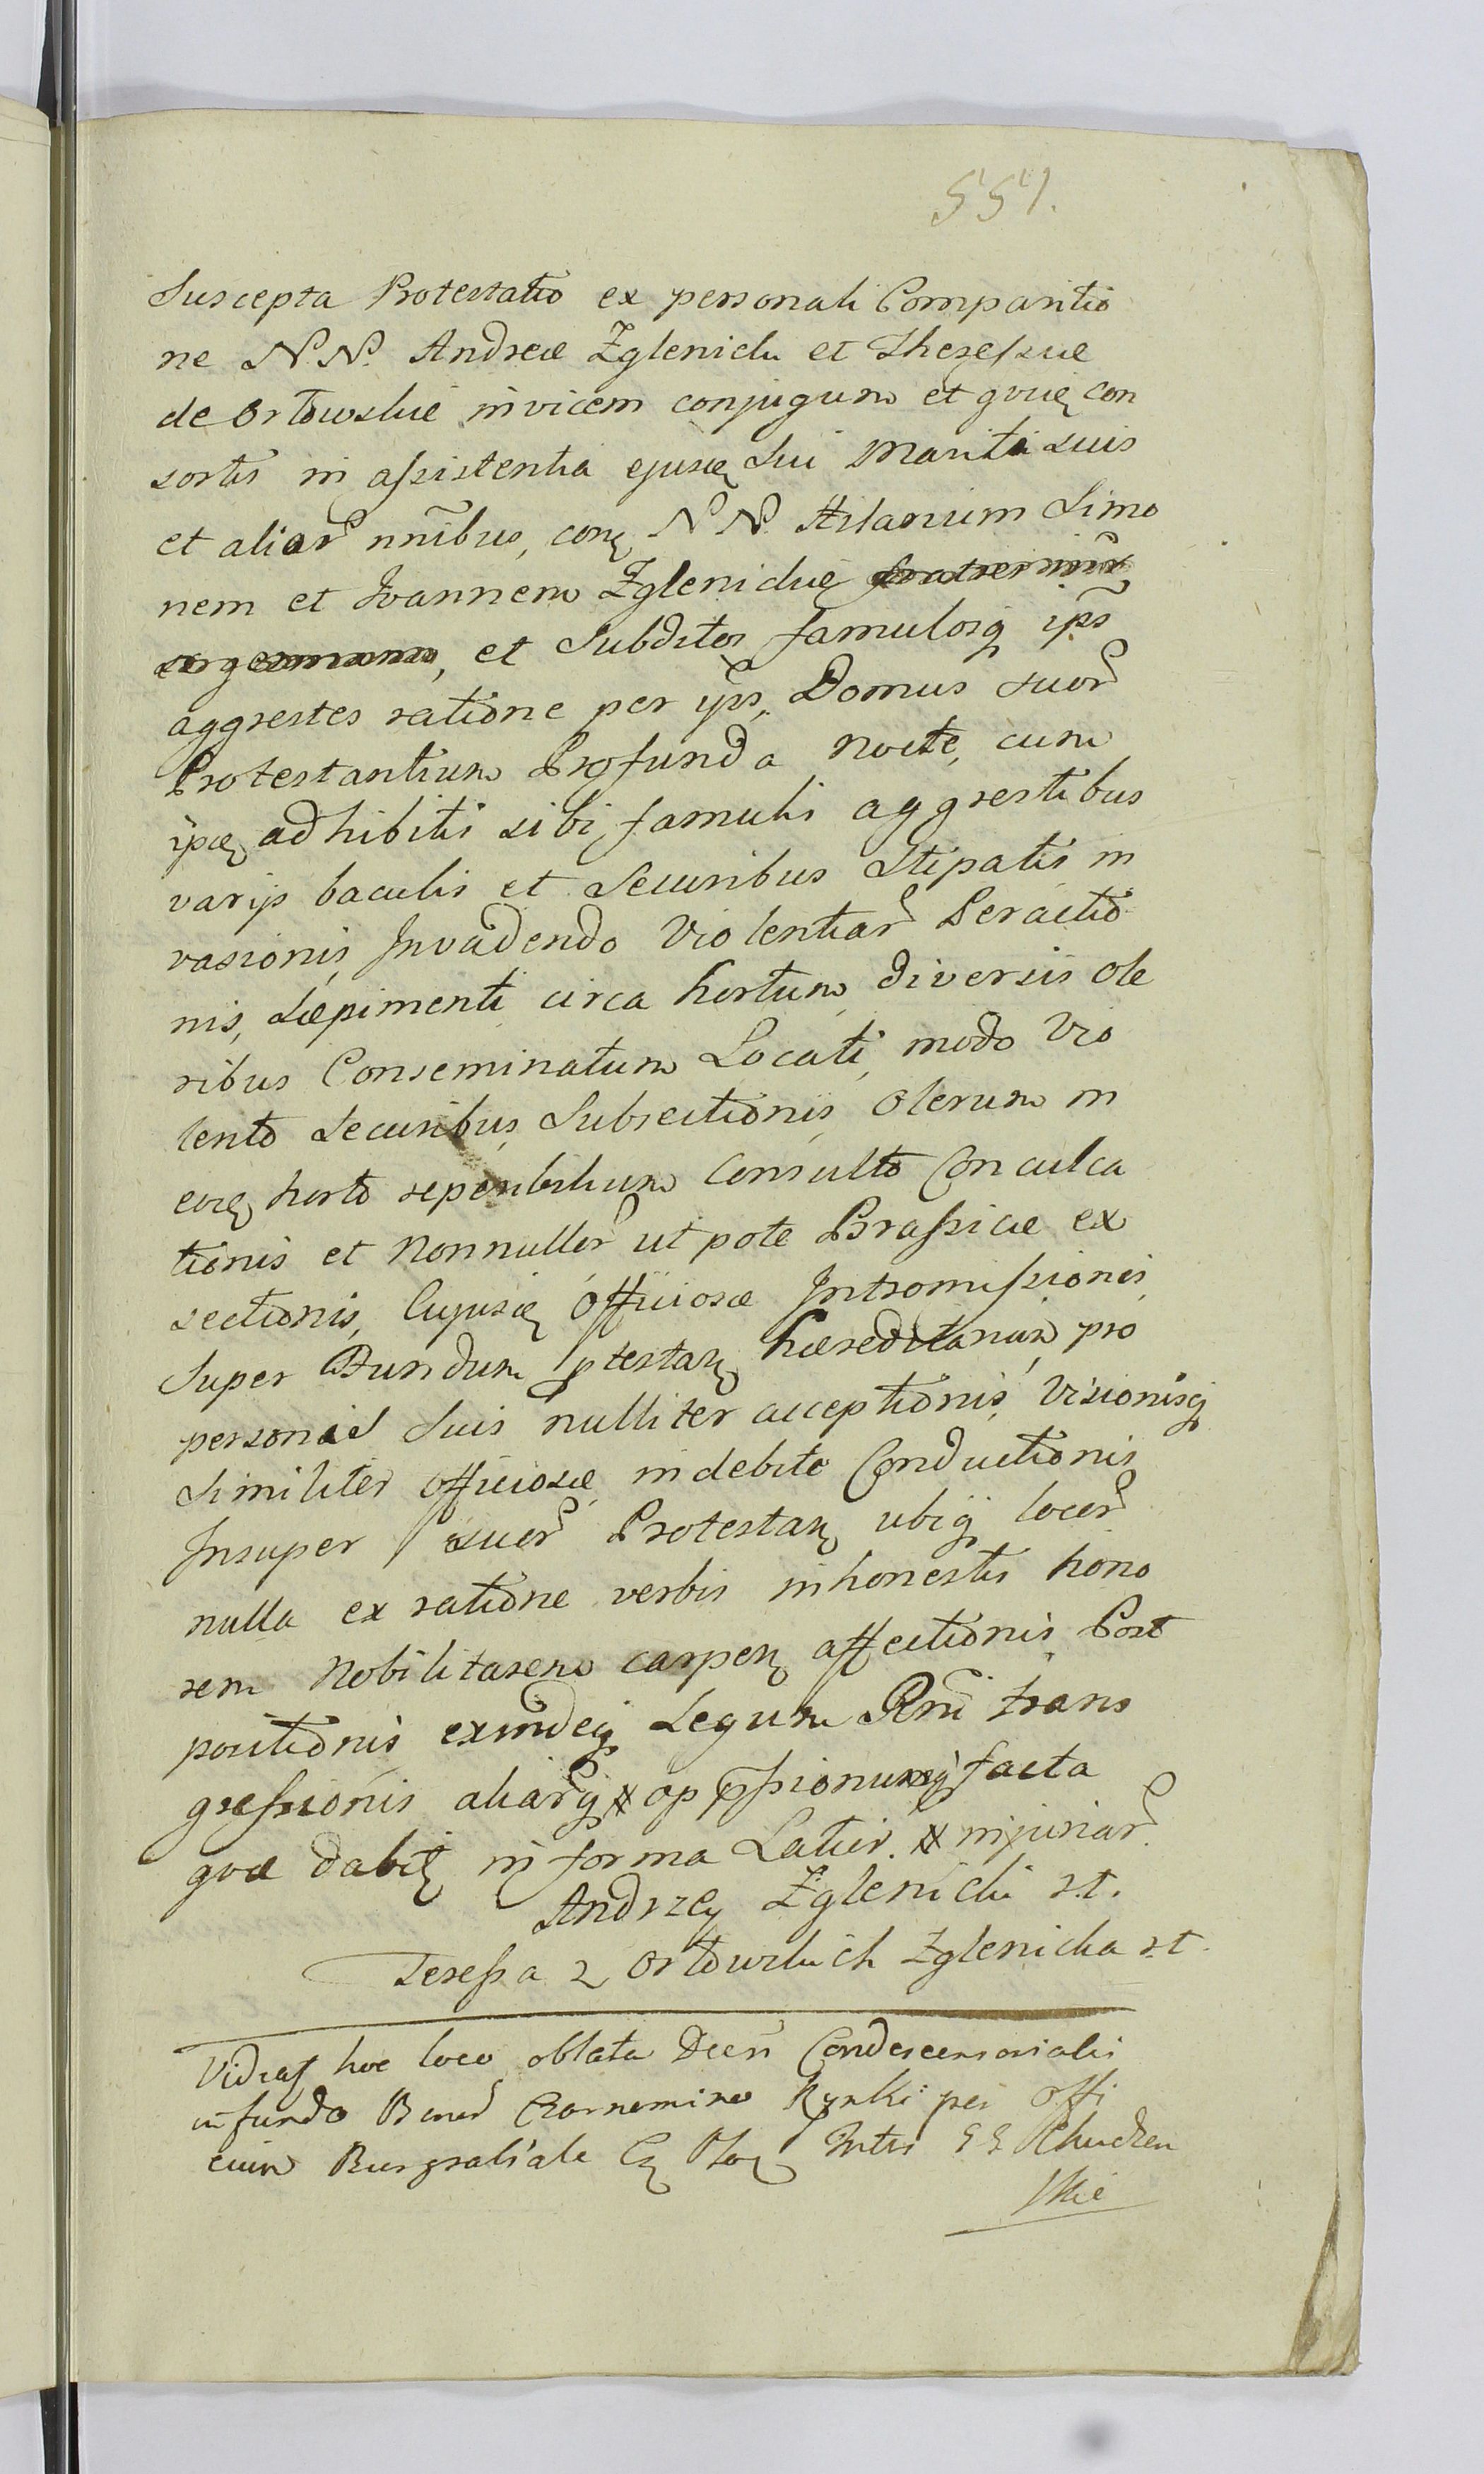 551.
Suscepta Protestatio ex personali Comparitio
ne N.N. Andreæ Zglenicki et Theressiæ
de Orłowskie invicem conjugum et qvię con
sortis in assistentia ejusdę sui Mariti suis
et aliar nñibus, conę N N. Hilarium Simo
nem et Joannem Zglenickie fratres
germanos, et Subditos famulosq ips
aggrestes ratione per ips, Domus suor
Protestantium Profunda Nocte, cum
ipsę adhibitis sibi famulis aggrestibus
varijs baculis et Securibus Stipatis in
vasionis, Invadendo Violentiar Peractio
nis, Sæpimenti circa hortum diversis ole
ribus Conseminatum Locati, modo Vio
lento Securibus Subsectionis, Olerum in
eodę horto reperibilium Consulto Conculca
tionis et Nonnullor ut pote Brassicæ ex
sectionis, Cujusdę Officiosæ Intromissionis
Super Fundum ptestanę hæreditarium pro
personis Suis nulliter acceptionis, Visionisq
similiter officiosæ indebite Conductionis
Insuper suor Protestanę ubiq locor
nulla ex ratione verbis inhonestis hono
rem Nobilitarem carpenę affectionis Post
positionis exindeq Legum Rni trans
gressionis aliarq # oppssionumq facta
qvæ dabitę in forma Latior. # injuriar
Andrzey Zglenicki s.t.
Teressa z Orłowskich Zglenicka s.t.
Vidras hoc loco oblata Decri Condescensorialis
in fundo Bonor Czarnemino Rynki per Offi
cium Burgrabiale Intr GG Chudzen
skie